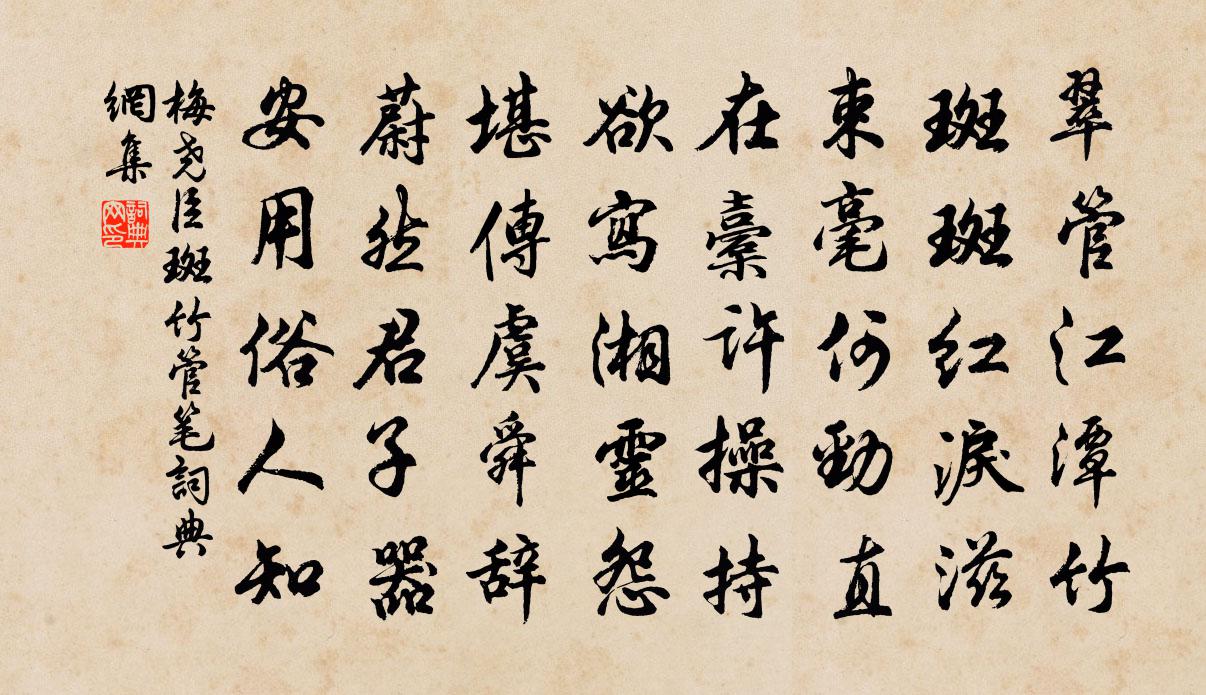 翠管江潭竹
斑斑紅淚滋
束毫何勁直
在橐許操持
欲寫湘靈怨
堪傳虞舜辞
蔚然君子器
安用俗人知
梅尧臣斑竹管笔詞典
網集
詞典
网印